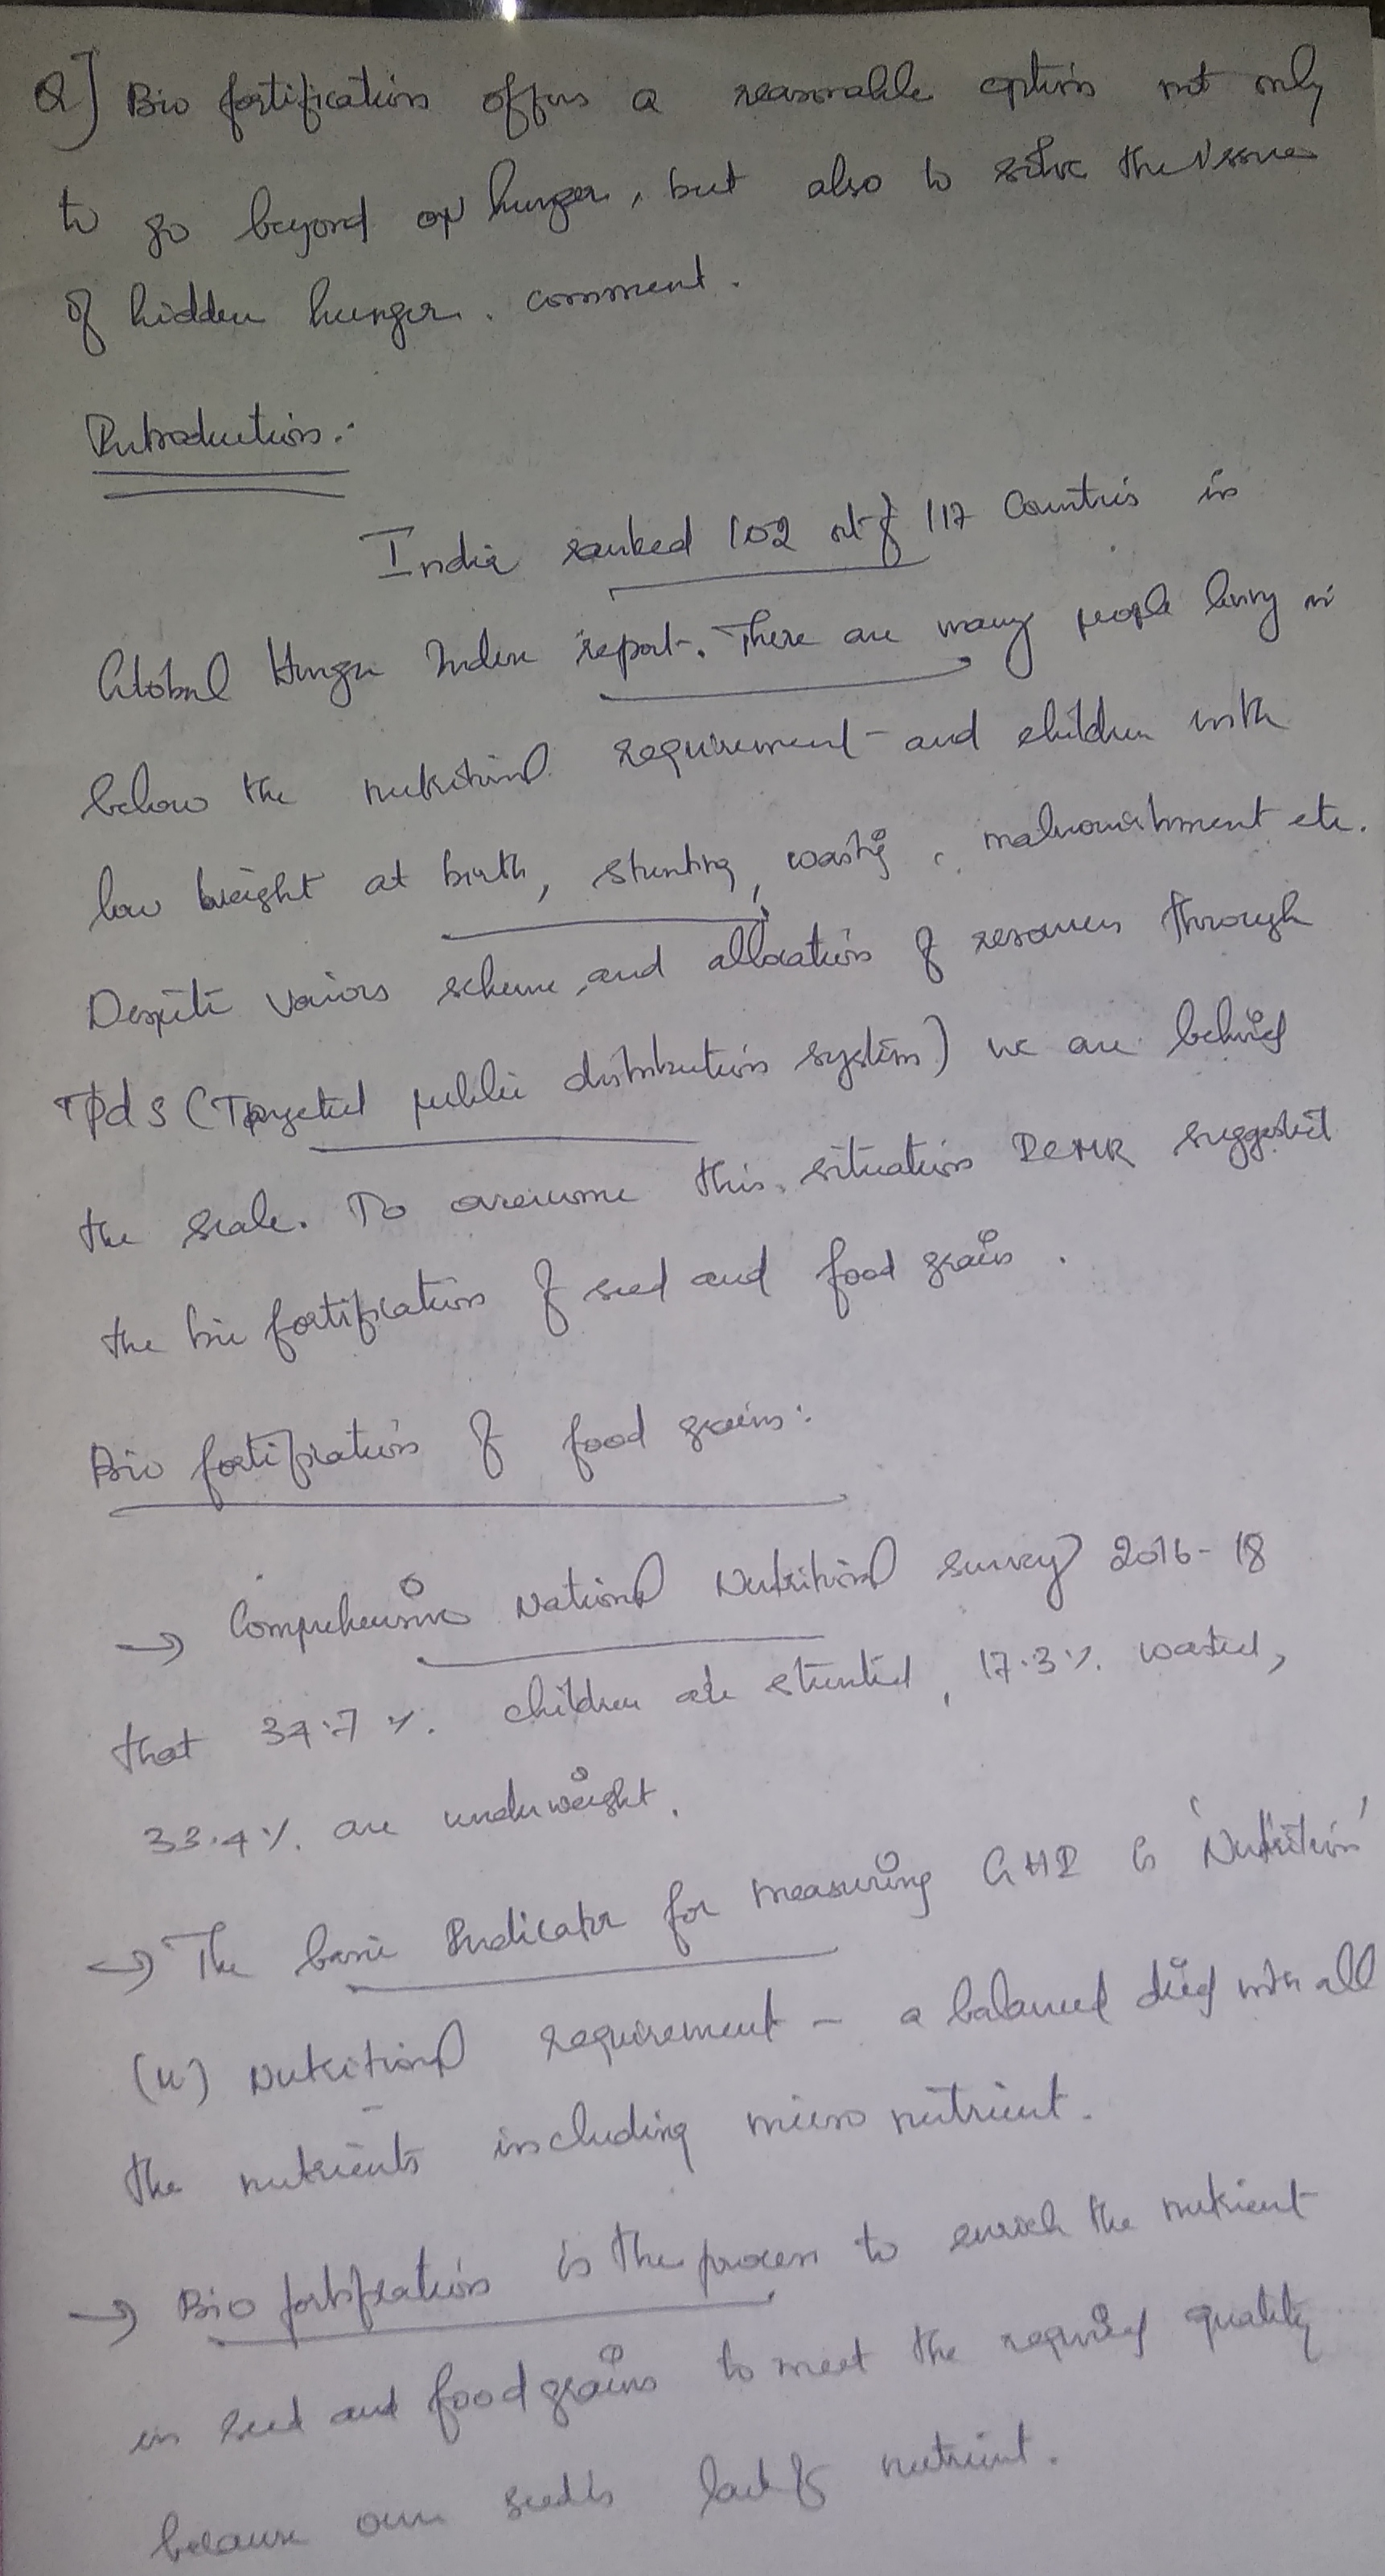 Q] Bio fortification offers a reasonable option not only
to go beyond hunger, but also to solve the issues
of hidden hunger. comment.
Introduction:-
India ranked 102 out of 117 Countries in
Global Hunger Index report. There are many people living in
below the nutritional requirement and children with
low weight at birth, stunting, wasting, malnourishment etc.
Despite various scheme and allocation of resources through
TPdS (Targeted public distribution system) we are behind
the scale. To overcome this situation ICMR suggested
the bio fortification of seed and food grain.
Bio fortification of food grains:
→ Comprehensive National Nutritional survey 2016-18
that 34.7 %. children are stunted, 17.3 %. wasted,
33.4 %. are underweight.
→ The basic Indicator for measuring GHI is 'Nutrition'
Nutritional requirement - a balanced died with all
the nutrients including micro nutrient.
→ Bio fortification is the process to enrich the nutrient
in seed and food grains to meet the required quality
because our seeds lack of nutrient.